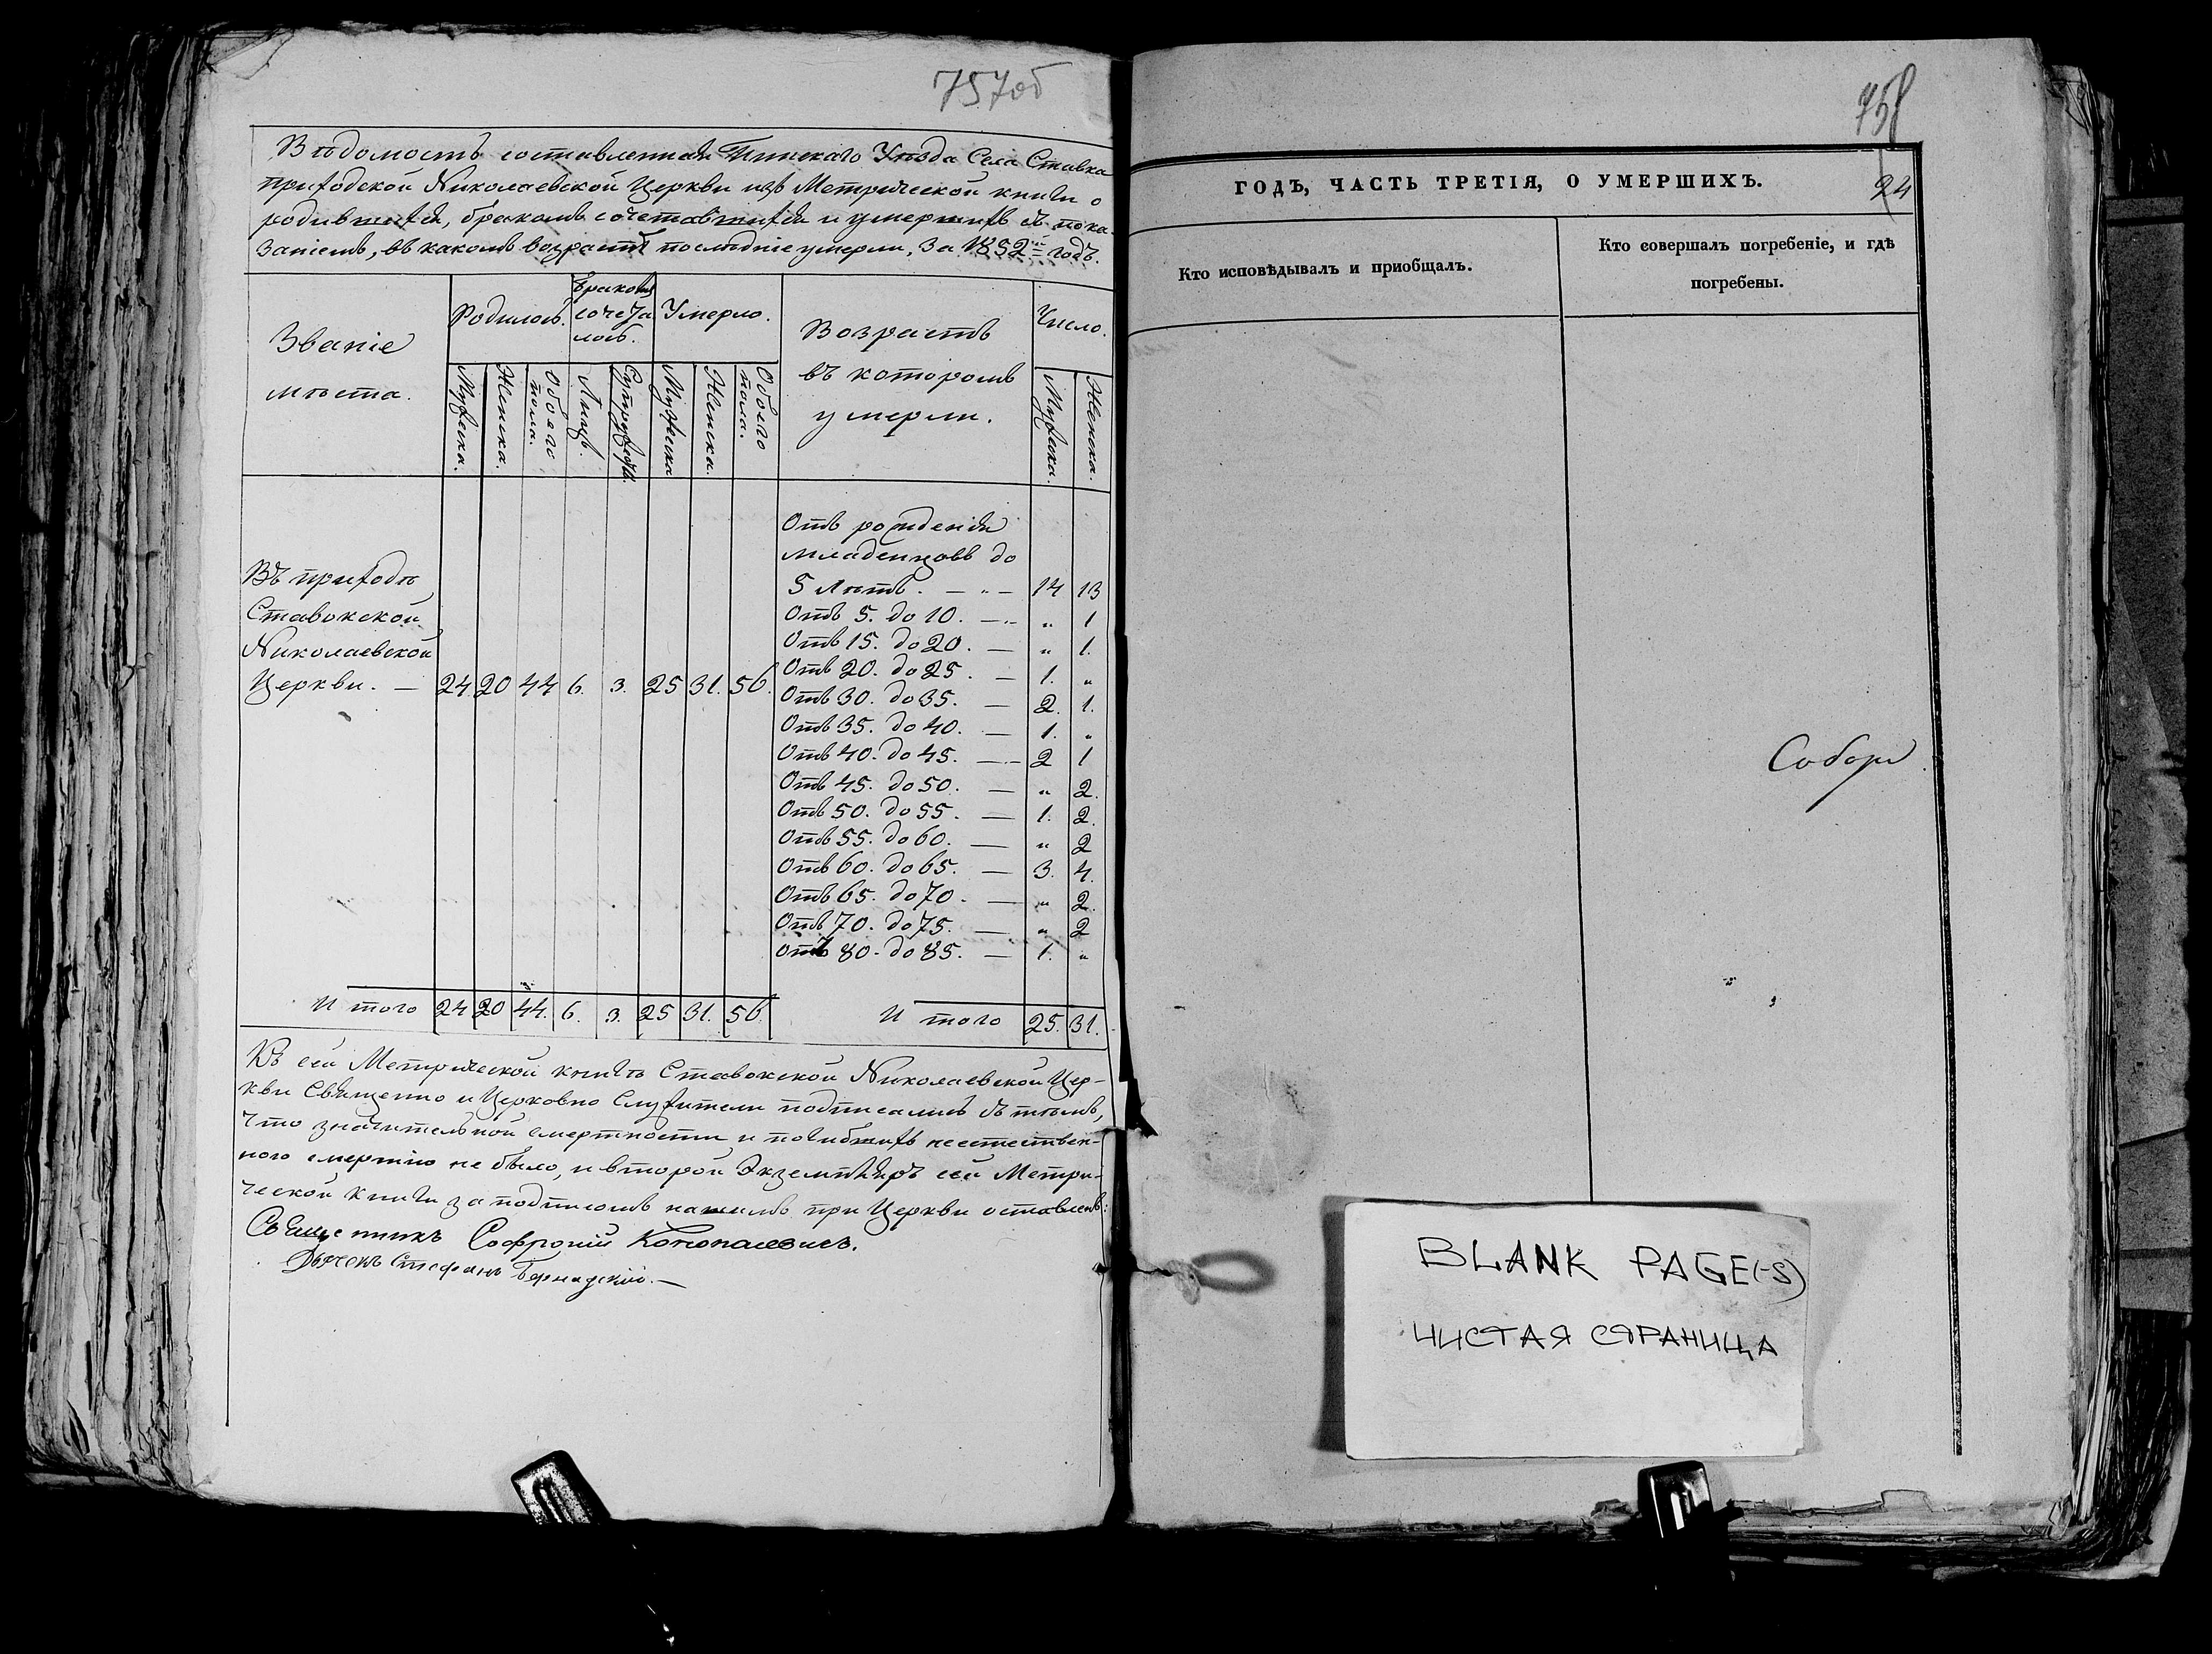 757об
Вѣдомость составленная Пинскаго Уѣзда Села Ставка
приходской Николаевской Церкви изъ Метрической книги о
родившихся, бракомъ сочетавшихся и умершихъ съ пока-
заніемъ, въ какомъ возрастѣ послѣдніе умерли, За 1852й годъ.
Званіе мѣста.
Родилось.
Бракомъ сочеталось.
Умерло.
Возрастъ въ которомъ умерли.
Число.
Мужеска. Женска. Обоего пола. Лицъ. Супружествъ. Мужеска Женска. Обоего пола. Мужеска. Женска.
Отъ рожденія
младенцовъ до
5 Лѣтъ. — „ — 14 13
Отъ 5. до 10. — „ 1
Отъ 15. до 20. — „ 1.
Отъ 20. до 25. — 1. „
Отъ 30. до 35. — 2. 1.
Отъ 35. до 40. — 1. „
Отъ 40. до 45. — 2 1
Отъ 45. до 50. — „ 2.
Отъ 50. до 55. — 1. 2.
Отъ 55. до 60. — „ 2
Отъ 60. до 65. — 3. 4.
Отъ 65. до 70. — „ 2.
Отъ 70. до 75. — „ 2
отъ 80. до 85. — 1. „
Въ приходѣ
Ставокской
Николаевской
Церкви. — 24 20 44 6. 3. 25 31. 56.
И того 24 20 44. 6. 3. 25 31. 56.
И того 25. 31.
Къ сей Метрической книгѣ Ставокской Николаевской Цер-
кви Священно и Церковно Служители подписались въ томъ,
что значительной смертности и погибшихъ неестествен-
ного смертію не было, и второй Экземпляръ сей Метри-
ческой книги за подписомъ нашимъ при Церкви оставленъ:
Священникъ Софроній Конопасевичъ.
Дьячекъ Стефанъ Бернадскій. —
758
24
ГОДЪ, ЧАСТЬ ТРЕТІЯ, О УМЕРШИХЪ.
Кто исповѣдывалъ и приобщалъ.
Кто совершалъ погребеніе, и гдѣ
погребены.
BLANK PAGE(-S)
ЧИСТАЯ СТРАНИЦА